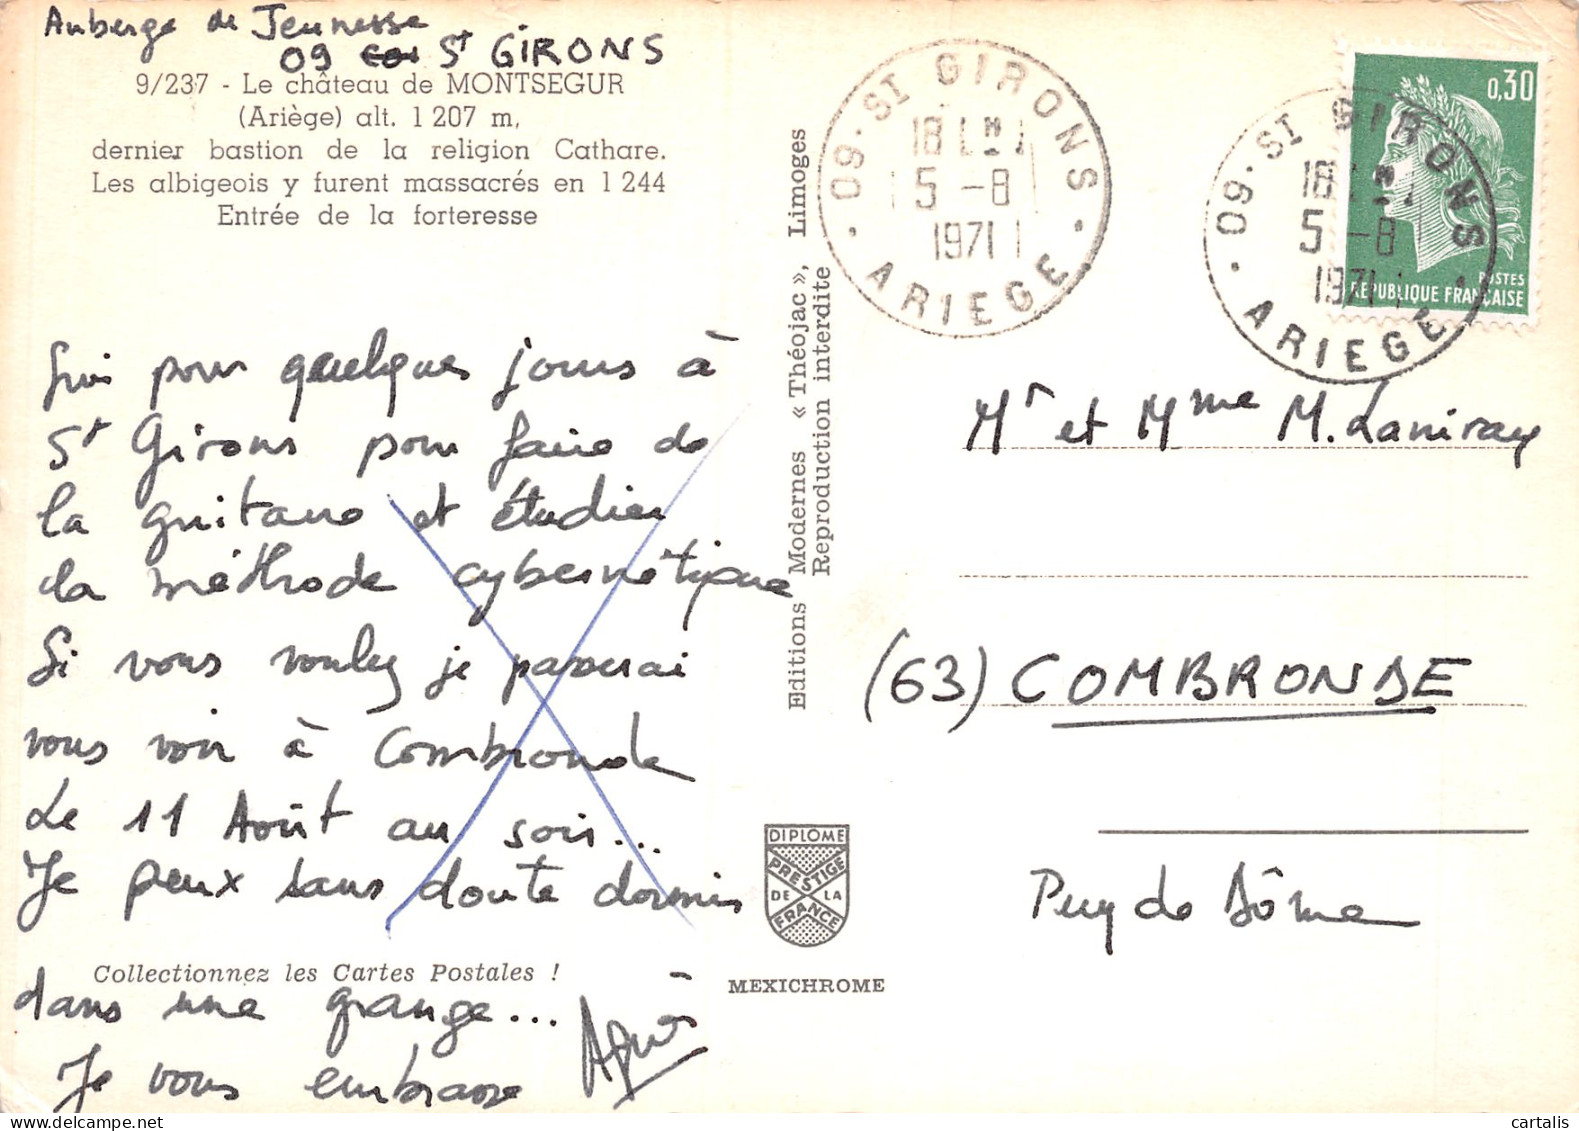 Auberge de Jeunesse
09 St GIRONS
9/237 - Le château de MONTSEGUR
(Ariège) alt. 1 207 m,
dernier bastion de la religion Cathare.
Les albigeois y furent massacrés en 1 244
Entrée de la forteresse
Suis pour quelques jours à
St Girons pour faire de
la guitare et étudier
la méthode cybernétique
Si vous voulez je passerai
vous voir à Combronde
Le 11 Août au soir...
Je peux sans doute dormir
Collectionnez les Cartes Postales !
dans une grange...
Je vous embrasse
Editions Modernes « Théojac », Limoges
Reproduction interdite
DIPLOME
PRESTIGE
DE LA
FRANCE
MEXICHROME
09 · ST GIRONS ·
18 H
5 -8
1971
ARIEGE
09 · ST GIRONS ·
18 H
5 -8
1971
ARIEGE
0,30
POSTES
REPUBLIQUE FRANÇAISE
Mr et Mme M. Laniray
(63) COMBRONDE
Puy de Dôme
cartalis